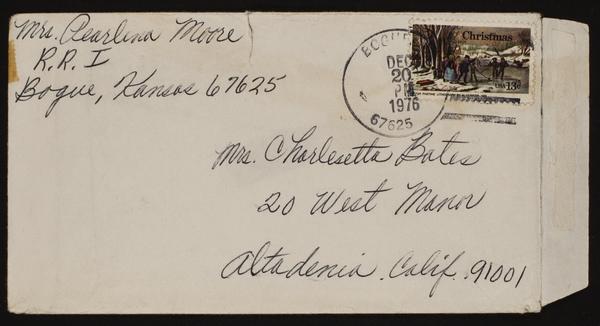 Mrs. Pearlena Moore
R.R. I
Bogue, Kansas 67625
DEC
20
PM
1976
67625
Christmas
USA 13c
Mrs. Charlesetta Bates
20 West Manor
Altadenia. Calif. 91001